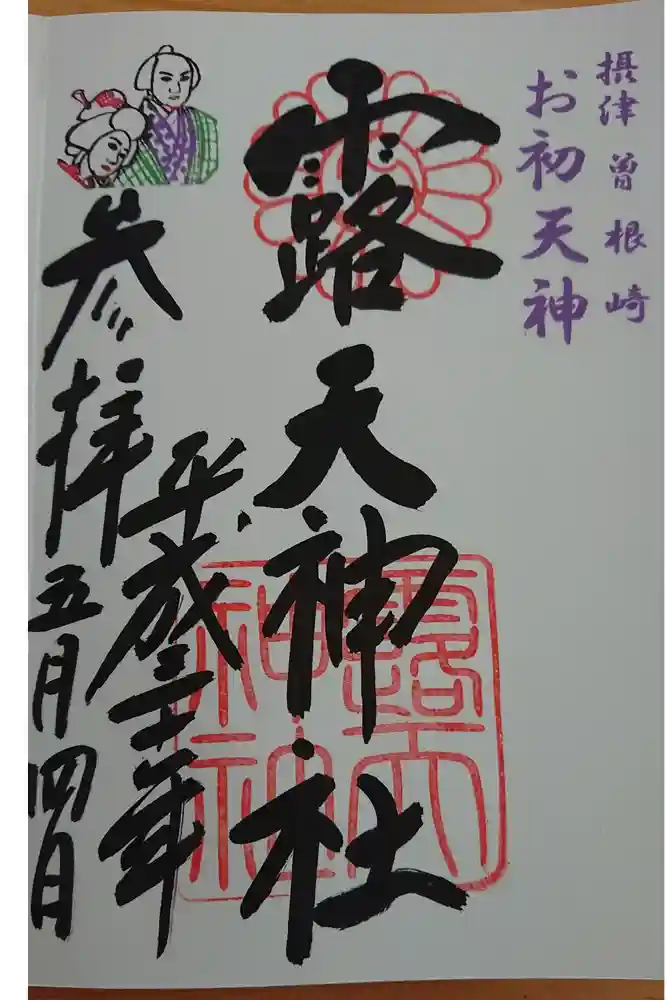 摂津 曽根崎
お初天神
露天神社
平成三十年
参拝 五月四日
露天
神社